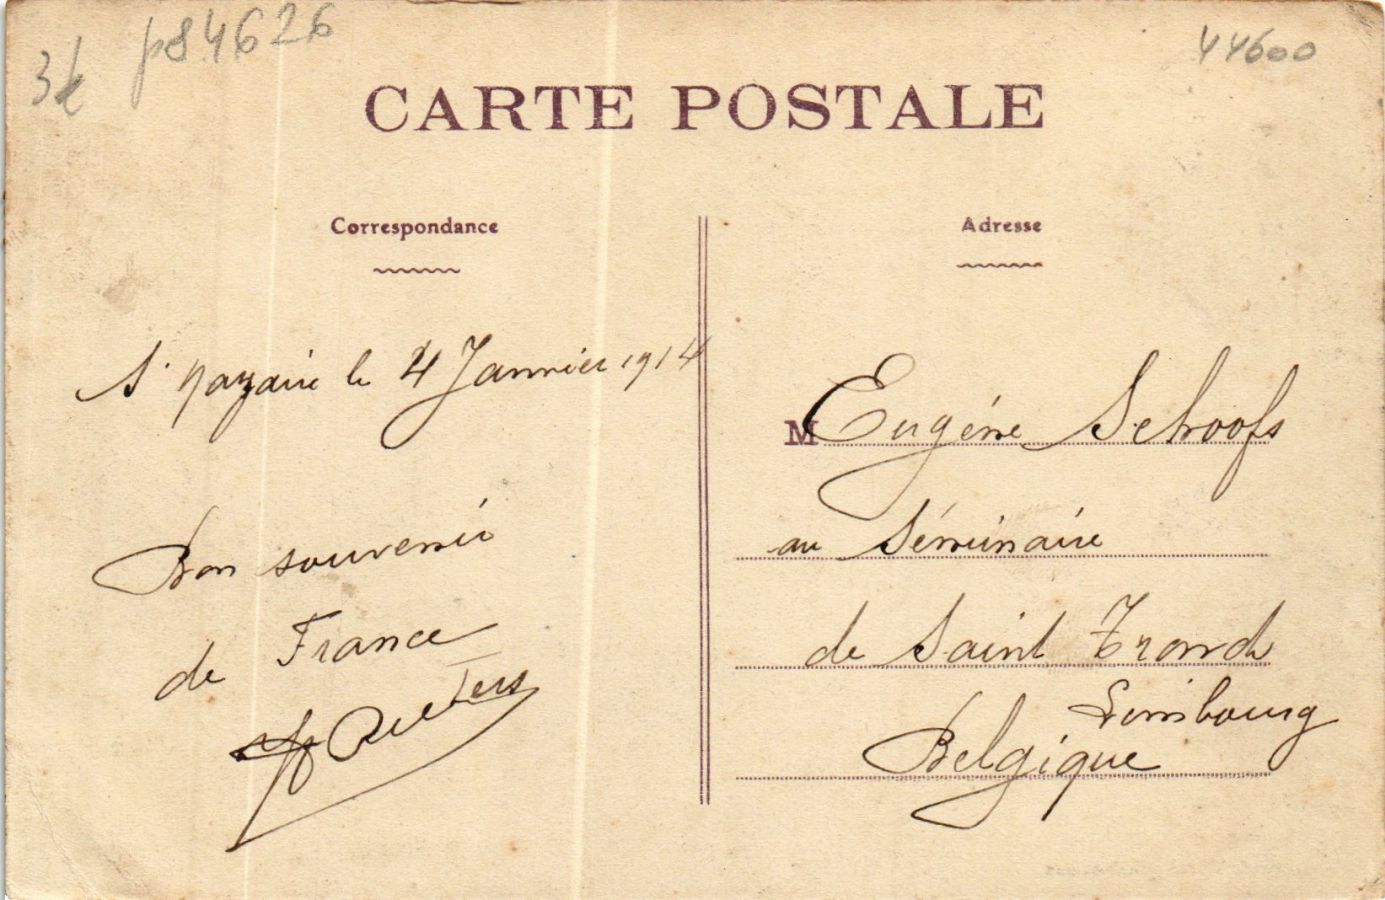 3€ p84626
44600
CARTE POSTALE
Correspondance
Adresse
St Nazaire le 4 Janvier 1914
Bon souvenir
de France
M Eugéne Schroofs
au Séminaire
de Saint Trond
Limbourg
Belgique